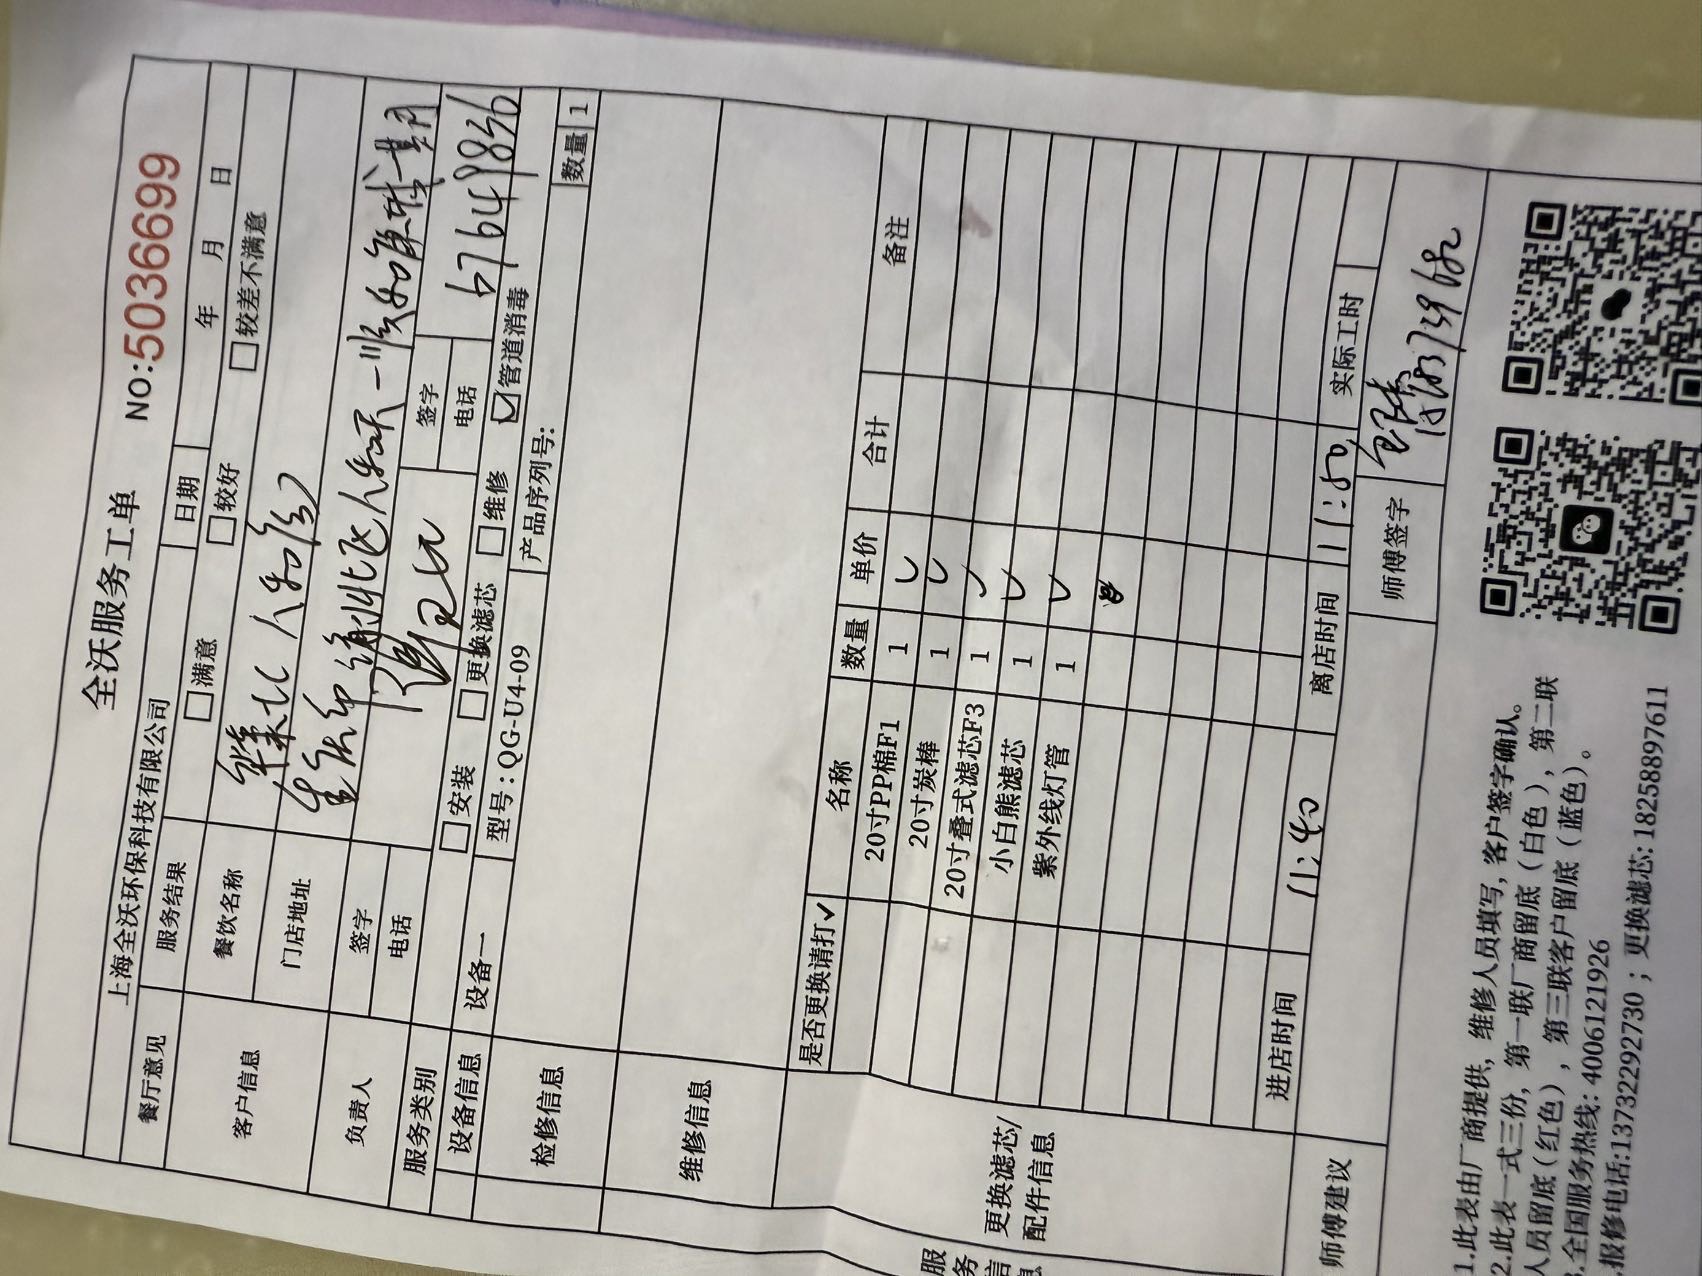 全沃服务工单
NO:5036699
上海全沃环保科技有限公司
日期 年 月 日
餐厅意见 服务结果 □满意 □较好 □较差不满意
客户信息 餐饮名称
门店地址
负责人 签字 签字
电话 电话 67649856
服务类别 □安装 □更换滤芯 □维修 ☑管道消毒
设备信息 设备一 型号：QG-U4-09 产品序列号: 数量 1
检修信息
维修信息
更换滤芯/配件信息
是否更换请打✓ 名称 数量 单价 合计 备注
20寸PP棉F1 1 ✓
20寸炭棒 1 ✓
20寸叠式滤芯F3 1 ✓
小白熊滤芯 1 ✓
紫外线灯管 1 ✓
进店时间 11:40 离店时间 11:50 实际工时
师傅建议 师傅签字
1.此表由厂商提供，维修人员填写，客户签字确认。
2.此表一式三份，第一联厂商留底（白色），第二联
人员留底（红色），第三联客户留底（蓝色）。
全国服务热线: 4006121926
报修电话:13732292730；更换滤芯: 18258897611